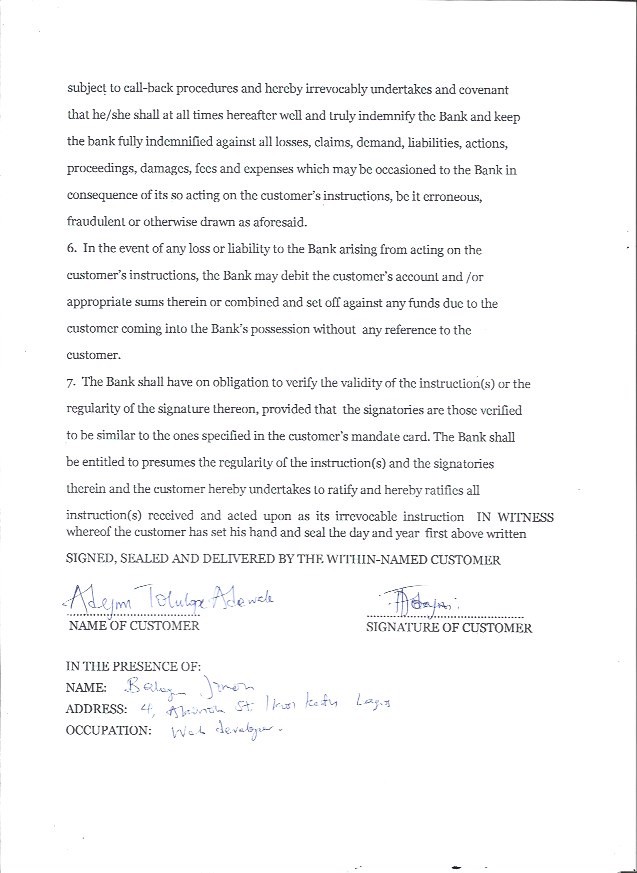 subject to call-back procedures and hereby irrevocably undertakes and covenant
that he/she shall at all times hereafter well and truly indemnify the Bank and keep
the bank fully indemnified against all losses, claims, demand, liabilities, actions,
proceedings, damages, fees and expenses which may be occasioned to the Bank in
consequence of its so acting on the customer's instructions, be it erroneous,
fraudulent or otherwise drawn as aforesaid.
6. In the event of any loss or liability to the Bank arising from acting on the
customer's instructions, the Bank may debit the customer's account and /or
appropriate sums therein or combined and set off against any funds due to the
customer coming into the Bank's possession without any reference to the
customer.
7. The Bank shall have on obligation to verify the validity of the instruction(s) or the
regularity of the signature thereon, provided that the signatories are those verified
to be similar to the ones specified in the customer's mandate card. The Bank shall
be entitled to presumes the regularity of the instruction(s) and the signatories
therein and the customer hereby undertakes to ratify and hereby ratifies all
instruction(s) received and acted upon as its irrevocable instruction IN WITNESS
whereof the customer has set his hand and seal the day and year first above written
SIGNED, SEALED AND DELIVERED BY THE WITHIN-NAMED CUSTOMER
NAME OF CUSTOMER SIGNATURE OF CUSTOMER
IN THE PRESENCE OF:
NAME:
ADDRESS: 4, St. Lagos
OCCUPATION: Web developer.